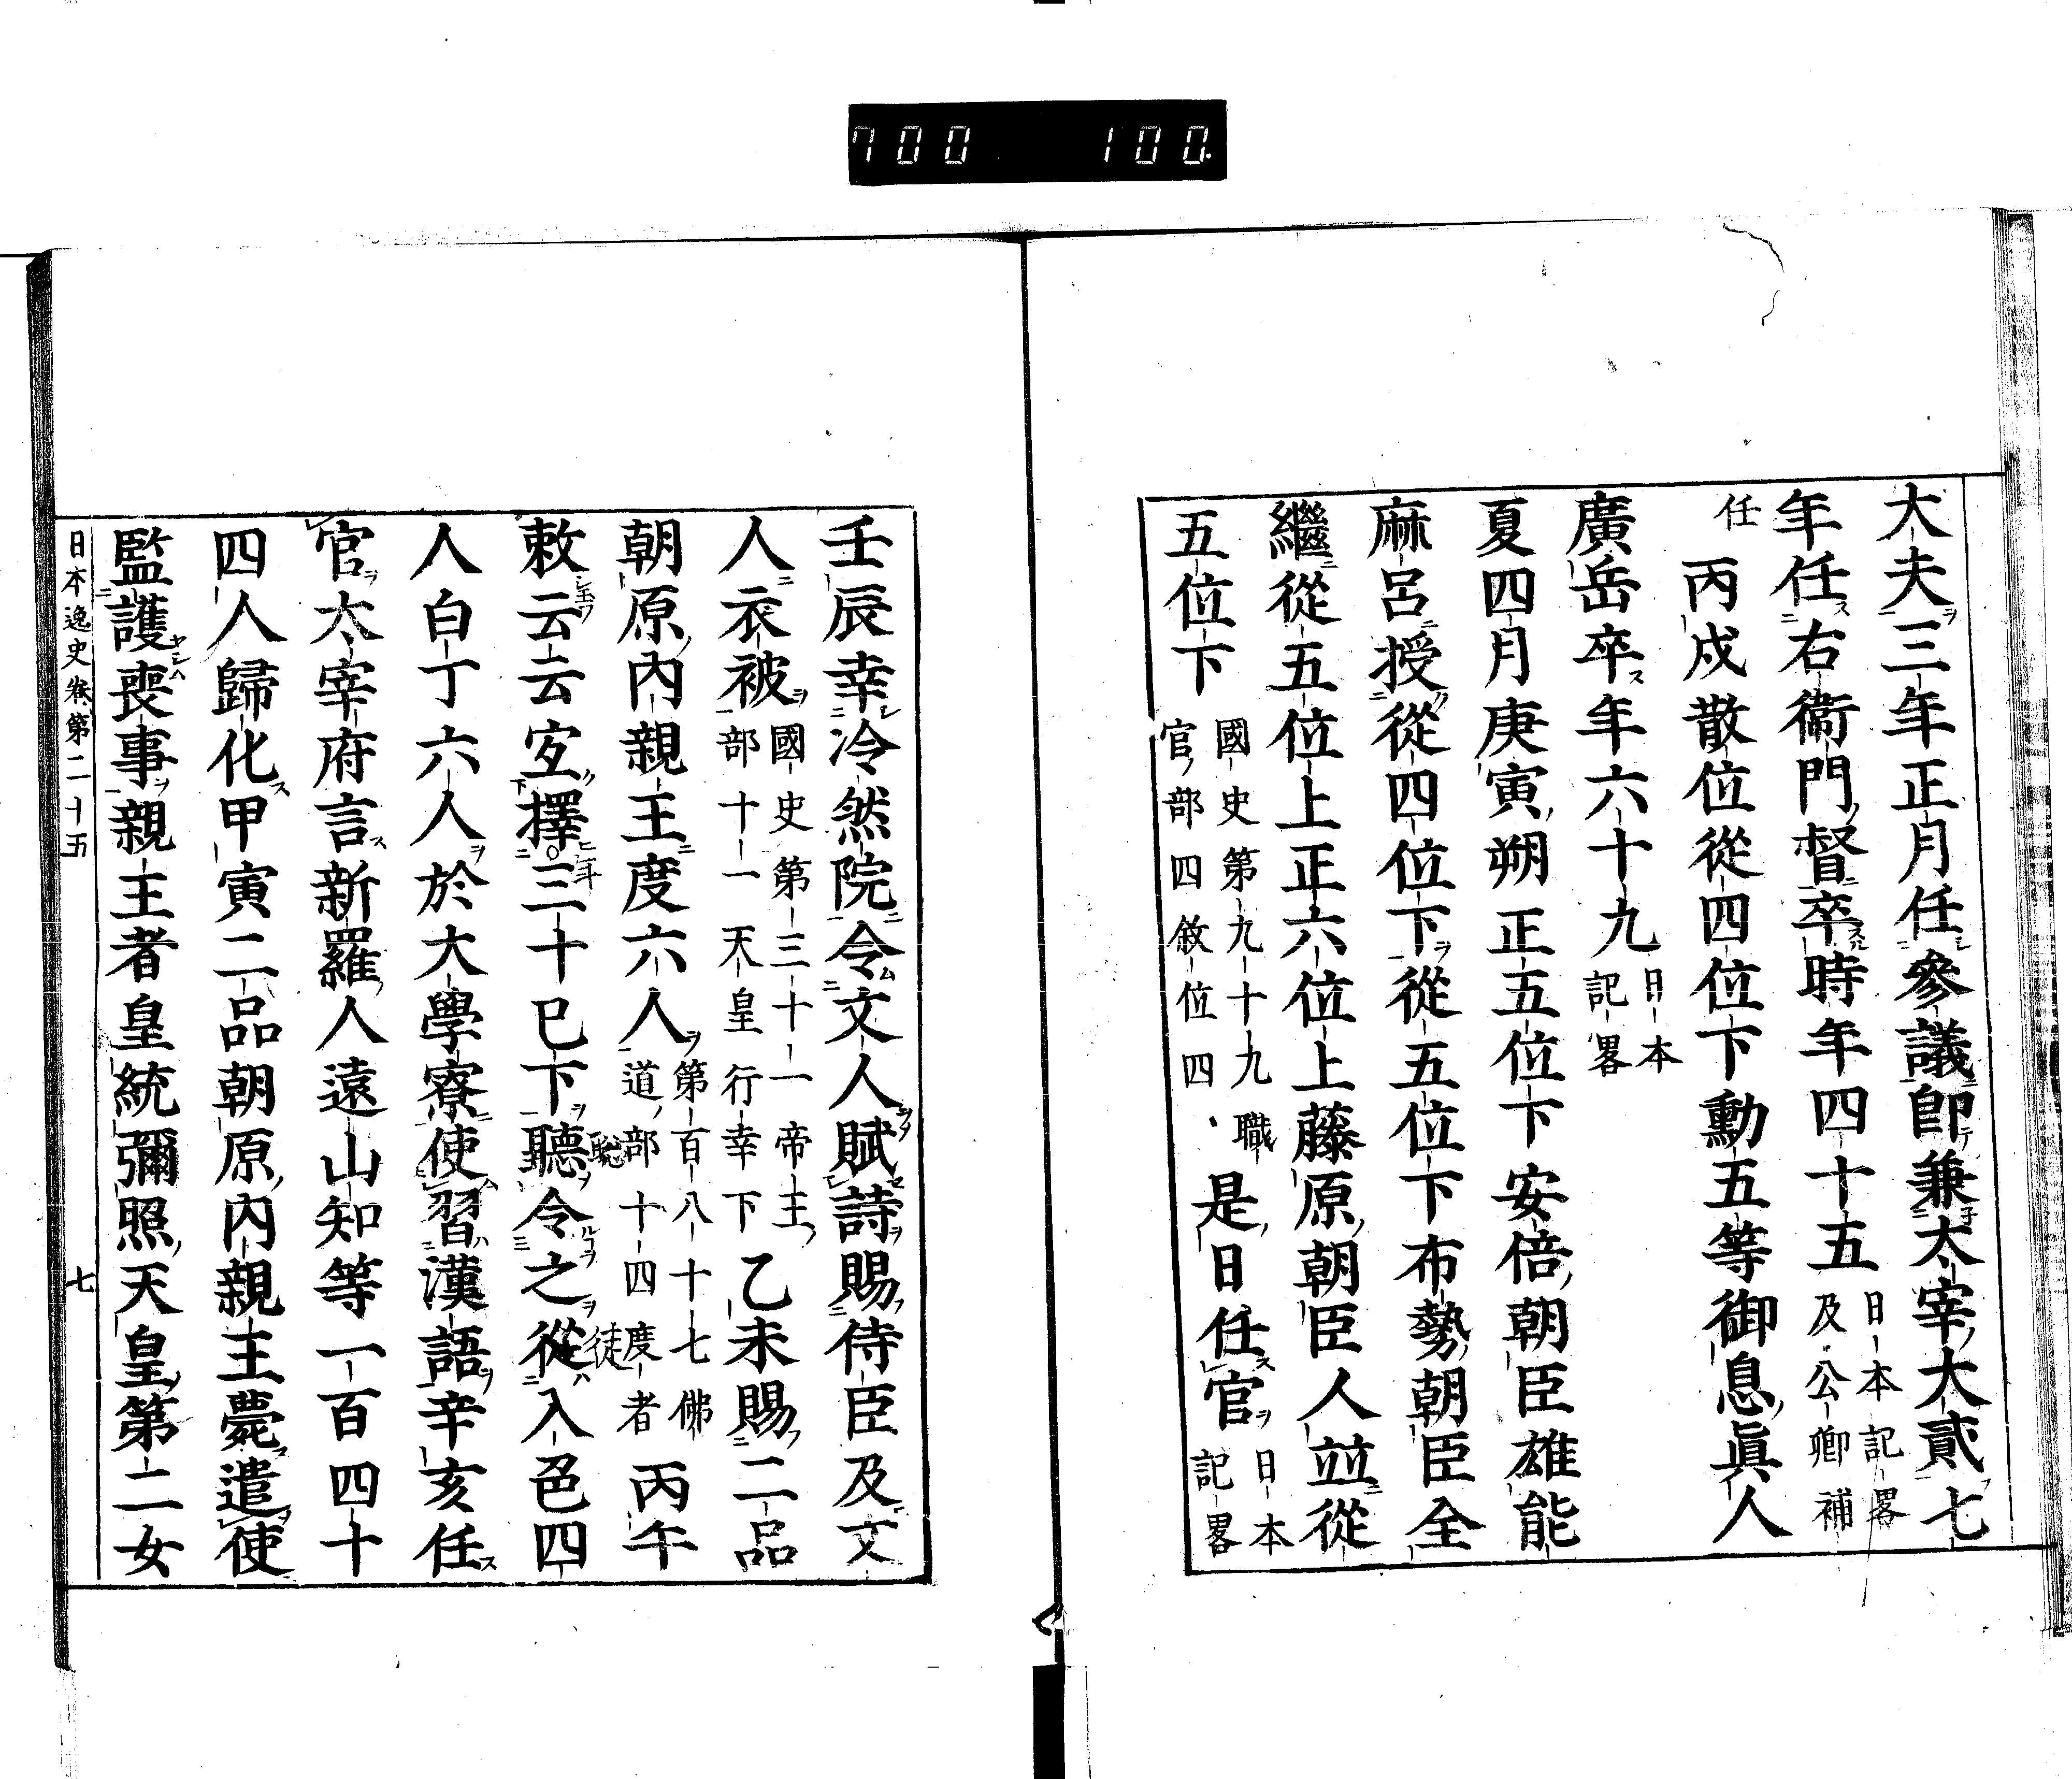 700 100.
大夫三年正月任參議卽兼太宰大貳七
年任右衞門督卒時年四十五 日本記畧
及公卿補
任
丙戌散位從四位下勳五等御息眞人
廣岳卒年六十九 日本
記畧
夏四月庚寅朔正五位下安倍朝臣雄能
麻呂授從四位下從五位下布勢朝臣全
繼從五位上正六位上藤原朝臣人竝從
五位下 國史第九十九職
官部四敘位四 是日任官 日本
記畧
壬辰幸冷然院令文人賦詩賜侍臣及文
人衣被 國史第三十一帝王
部十一天皇行幸下 乙未賜二品
朝原內親王度六人 第百八十七佛
道部十四度者 丙午
敕云云宜擇三十已下聽令之從入色四
年
聰
徒
人白丁六人於大學寮使習漢語辛亥任
官太宰府言新羅人遠山知等一百四十
四人歸化甲寅二品朝原內親王薨遣使
監護喪事親王者皇統彌照天皇第二女
日本逸史卷第二十五 七